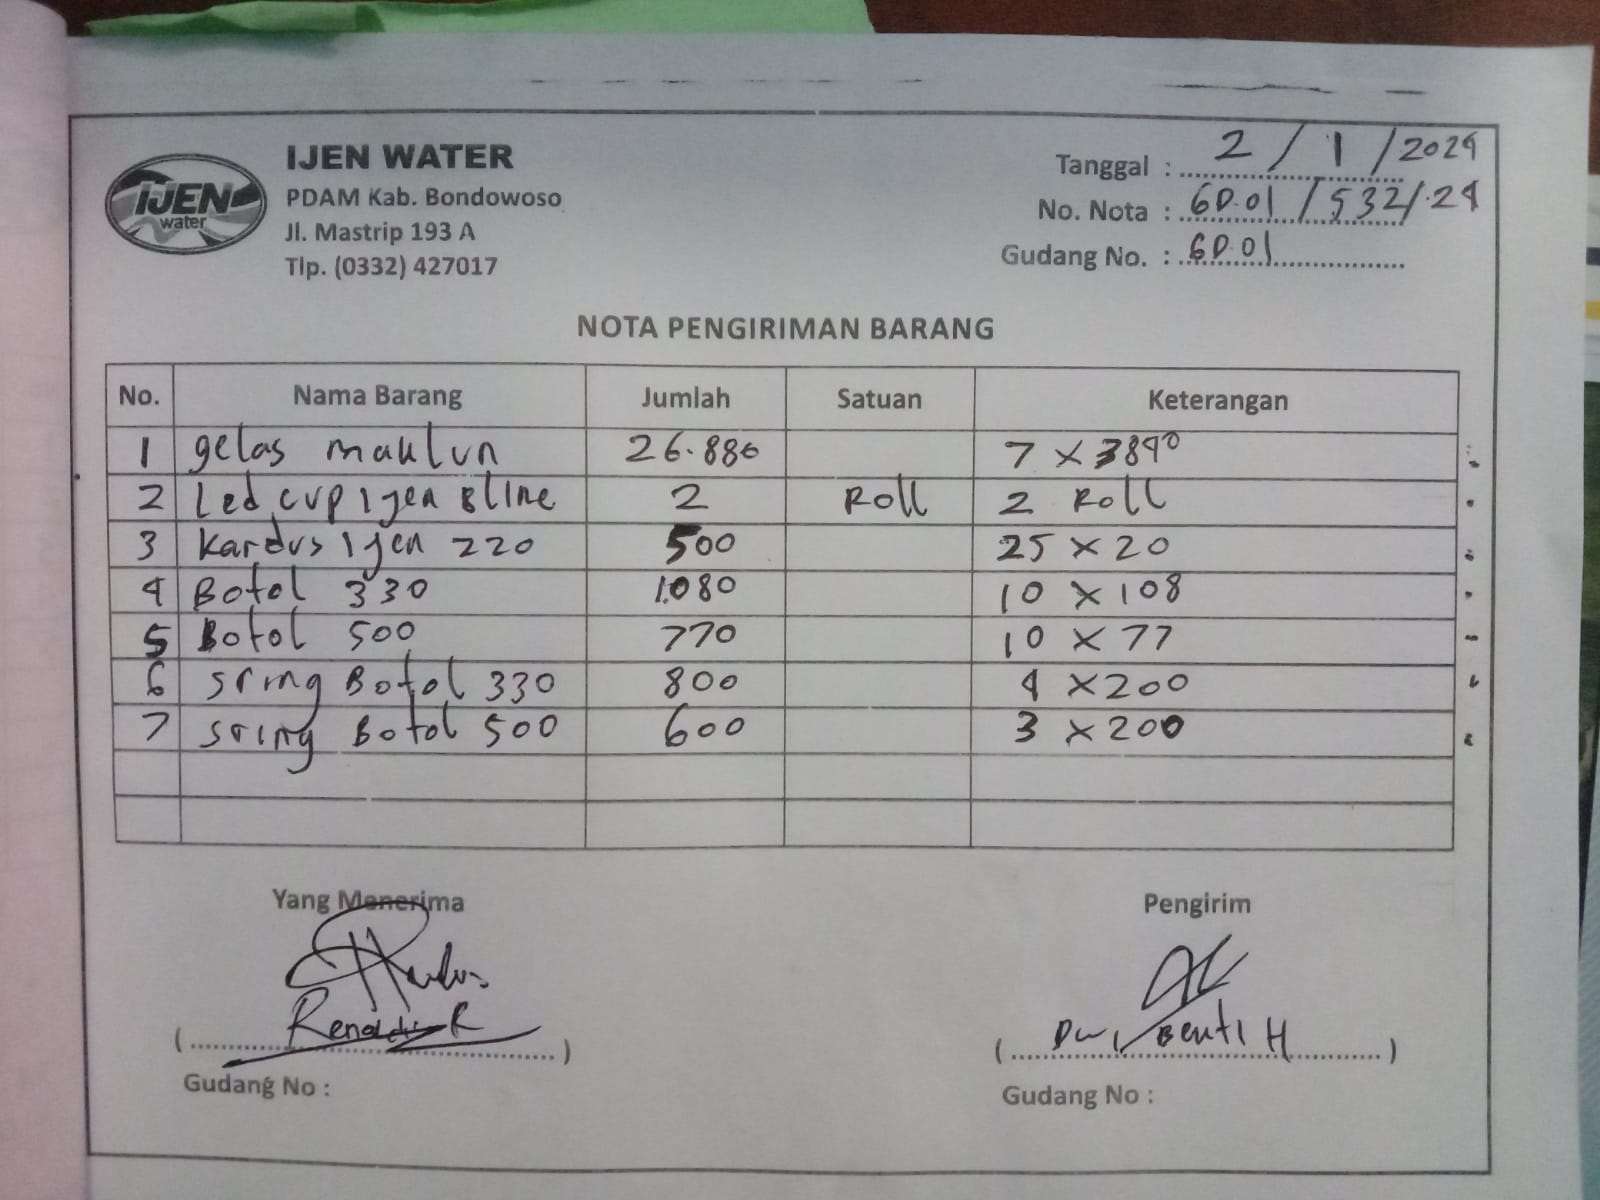 IJEN WATER
PDAM Kab. Bondowoso
Jl. Mastrip 193 A
Tlp. (0332) 427017
IJEN
water
Tanggal : 2 / 1 / 2024
No. Nota : GD.01 / 532/.24
Gudang No. : GD.01
NOTA PENGIRIMAN BARANG
No. Nama Barang Jumlah Satuan Keterangan
1 gelas maklun 26.880 7 x 3840
2 Led cup Ijen 8 line 2 Roll 2 Roll
3 Kardus Ijen 220 500 25 x 20
4 Botol 330 1.080 10 x 108
5 Botol 500 770 10 x 77
6 sring Botol 330 800 4 x 200
7 sring Botol 500 600 3 x 200
Yang Menerima Pengirim
( Renaldi R ) ( Dwi Benti H )
Gudang No : Gudang No :